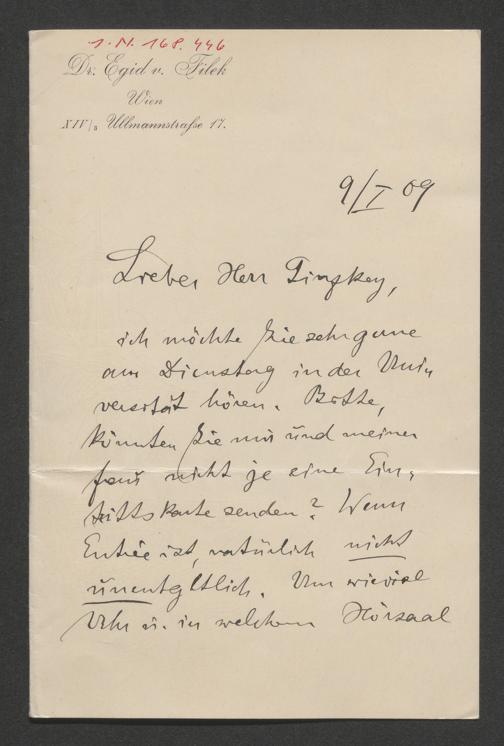 I.N. 168.446
Dr. Egid v. Filek
Wien
XIV/3 Ullmannstraße 17.
9/I 09
Lieber Herr Ginzkey,
ich möchte Sie sehr gerne
am Dienstag in der Uni-
versität hören. Bitte,
könnten Sie mir und meiner
Frau nicht je eine Ein-
trittskarte senden? Wenn
Entrée ist, natürlich nicht
unentgltlich. Um wieviel
Uhr u. in welchem Hörsaal